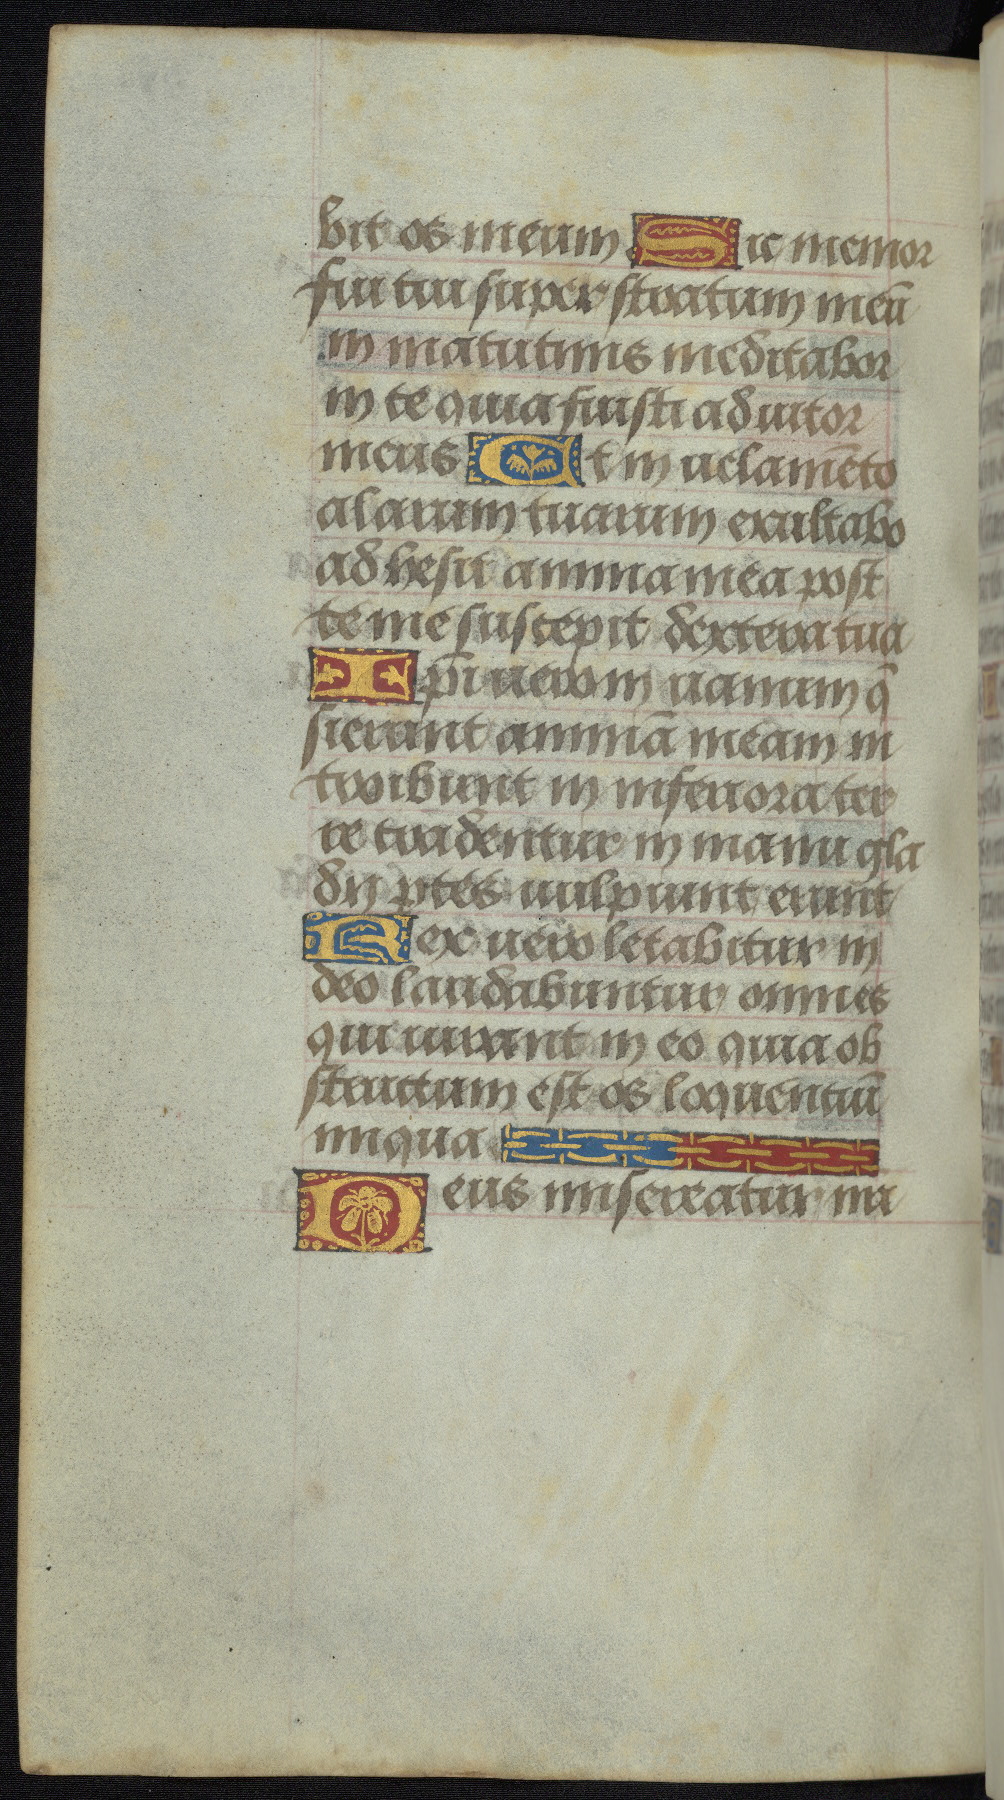 bit os meum Sic memor
fui tui super stratum meū
in matutinis meditabor
in te quia fuisti adiutor
meus Et in uelamēto
alarum tuarum exultabo
adhesit anima mea post
te me suscepit dextera tua
Ip̄i uero in uanum q̄
sierunt animā meam in
troibunt in inferiora ter
re tradentur in manu gla
dij ptes uulpium erunt
Rex uero letabitur in
deo laudabuntur omnes
qui iurant in eo quia ob
structum est os loquentiū
iniqua
Deus misereatur nri